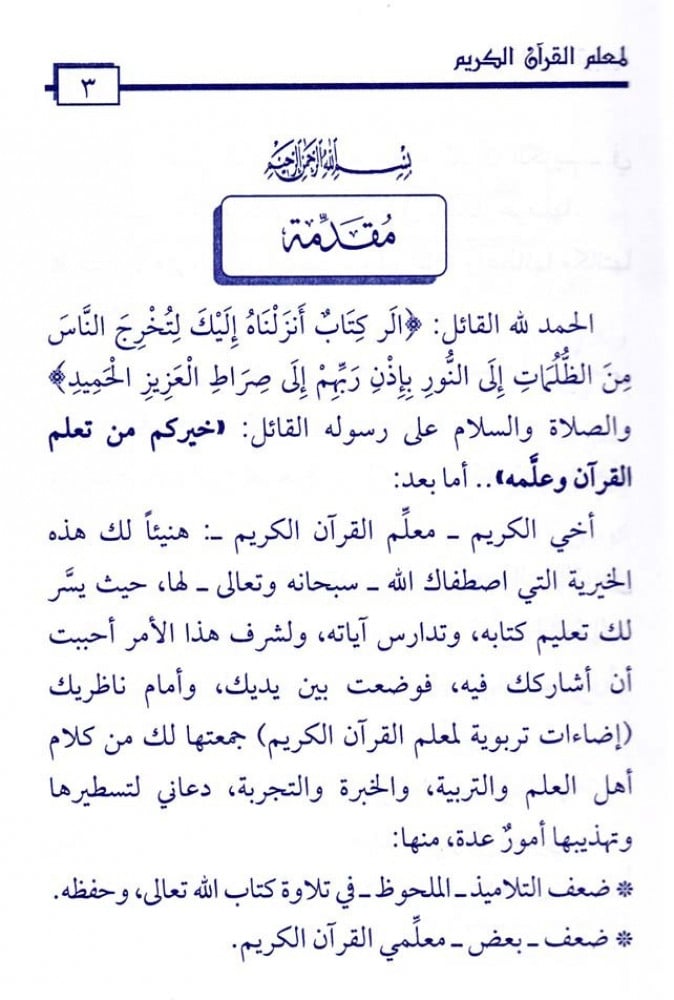 لمعلم القرآن الكريم
٣
بسم الله الرحمن الرحيم
مُقَدِّمة
الحمد لله القائل: ﴿الَر كِتَابٌ أَنزَلْنَاهُ إِلَيْكَ لِتُخْرِجَ النَّاسَ
مِنَ الظُّلُمَاتِ إِلَى النُّورِ بِإِذْنِ رَبِّهِمْ إِلَى صِرَاطِ الْعَزِيزِ الْحَمِيدِ﴾
والصلاة والسلام على رسوله القائل: «خيركم من تعلم
القرآن وعلَّمه».. أما بعد:
أخي الكريم ـ معلِّم القرآن الكريم ـ: هنيئاً لك هذه
الخيرية التي اصطفاك الله ـ سبحانه وتعالى ـ لها، حيث يسَّر
لك تعليم كتابه، وتدارس آياته، ولشرف هذا الأمر أحببت
أن أشاركك فيه، فوضعت بين يديك، وأمام ناظريك
(إضاءات تربوية لمعلم القرآن الكريم) جمعتها لك من كلام
أهل العلم والتربية، والخبرة والتجربة، دعاني لتسطيرها
وتهذيبها أمورٌ عدة، منها:
* ضعف التلاميذ ـ الملحوظ ـ في تلاوة كتاب الله تعالى، وحفظه.
* ضعف ـ بعض ـ معلِّمي القرآن الكريم.